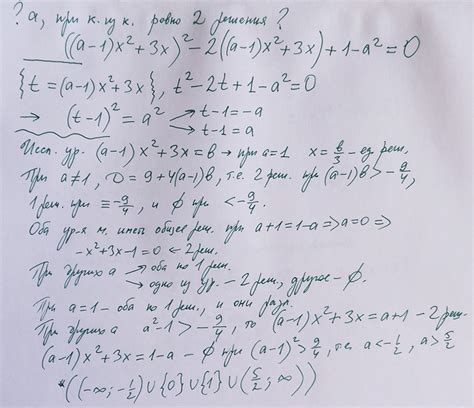 ? a, при к. из к. ровно 2 решения?
((a-1)x²+3x)²-2((a-1)x²+3x)+1-a²=0
{t=(a-1)x²+3x}, t²-2t+1-a²=0
→ (t-1)²=a² → t-1=-a
→ t-1=a
Иссл. ур. (a-1)x²+3x=b → при a=1 x=b/3 - ед. реш.
При a≠1, D=9+4(a-1)b, т.е. 2 реш. при (a-1)b>-9/4,
1 реш. при ≡-9/4, и ∅ при <-9/4.
Оба ур-я м. иметь общее реш. при a+1=1-a=>a=0=>
-x²+3x-1=0 ← 2 реш.
При других a → оба по 1 реш.
→ одно из ур. - 2 реш., другое - ∅.
При a=1 - оба по 1 реш., и они разл.
При других a a²-1>-9/4, то (a-1)x²+3x=a+1 - 2 реш.
(a-1)x²+3x=1-a - ∅ при (a-1)²>9/4, т.е. a<-1/2, a>5/2
((-∞;-1/2)∪{0}∪{1}∪(5/2;∞))